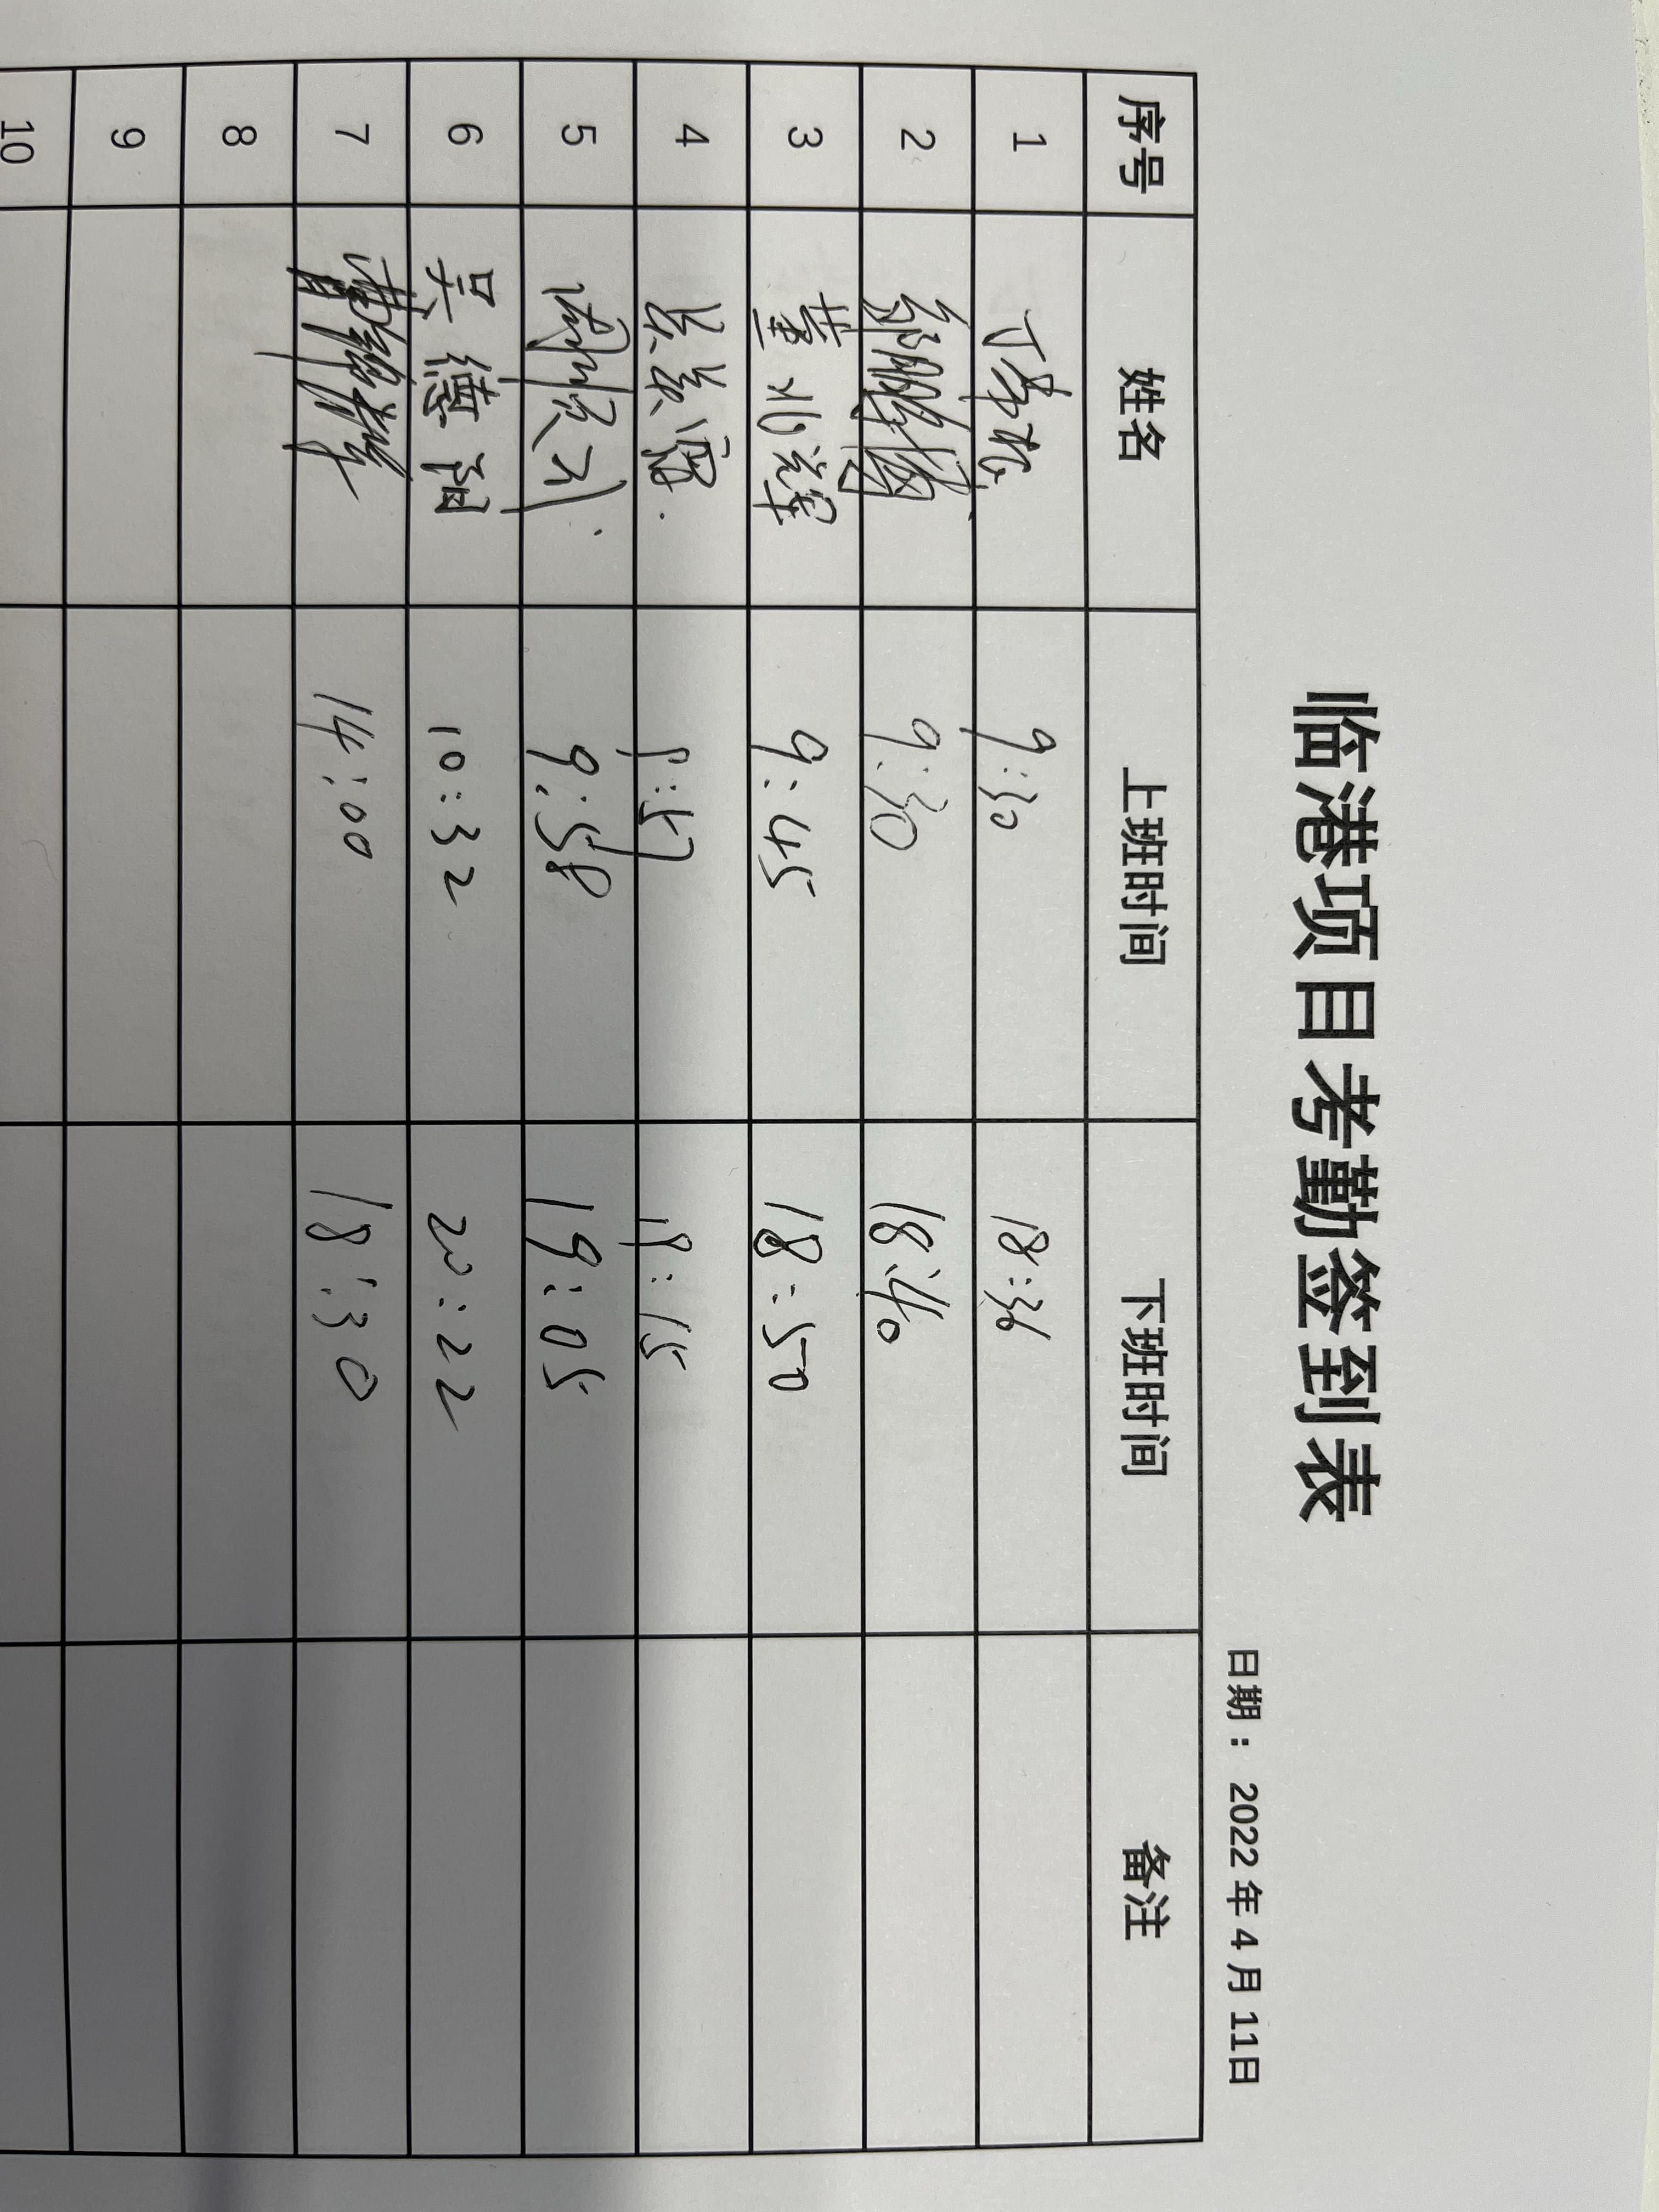 临港项目考勤签到表
日期： 2022 年 4 月 11日
序号 姓名 上班时间 下班时间 备注
1 9:30 18:36
2 邹鹏博 9:30 18:40
3 董兆辉 9:45 18:50
4 9:57 19:15
5 9:58 19:05
6 吴德阳 10:32 20:22
7 曹锦辉 14:00 18:30
8
9
10